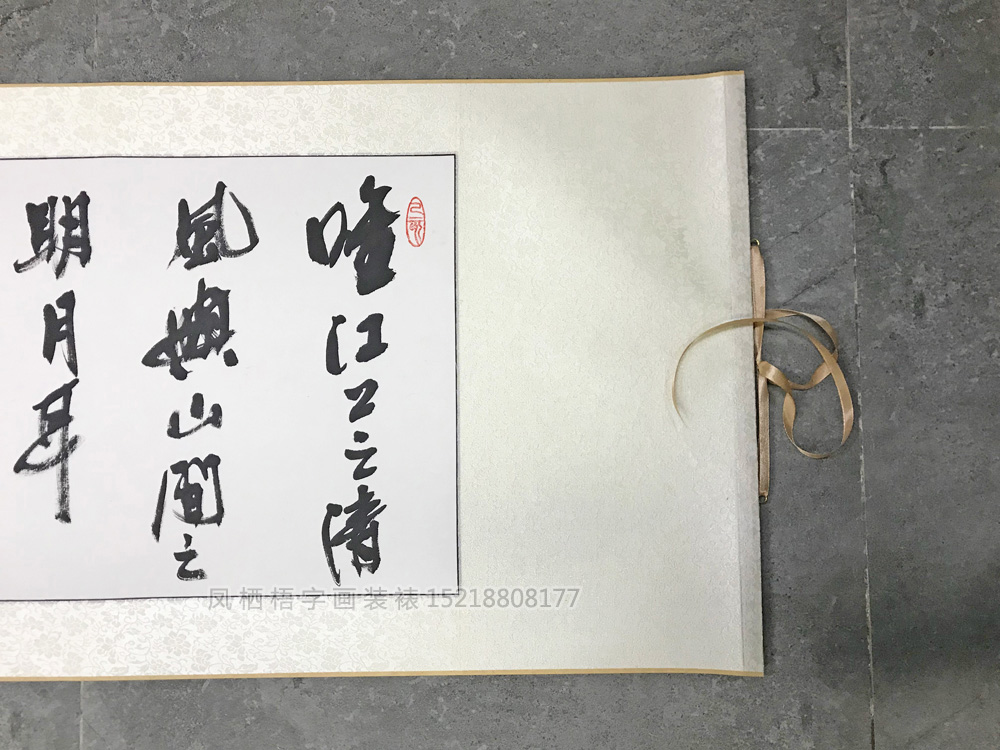 唯江上之清
風與山間之
明月耳
凤栖梧字画装裱 15218808177